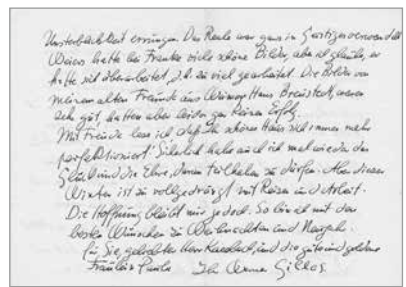 Unsterblichkeit erringen. Das Reale war ganz in Geistiges verwandelt
Weiers hatte bei Franke viele schöne Bilder, aber ich glaube, er
hatte sich überarbeitet, d.h. zu viel gearbeitet. Die Bilder von
meinem alten Freunde aus Weimar Hans Breustedt, waren
sehr gut, hatten aber leider gar keinen Erfolg.
Mit Freude lese ich daß Ihr schönes Haus sich immer mehr
perfektioniert! Sicherlich habe auch ich mal wieder das
Glück und die Ehre, darin trücheln zu dürfen. Aber dieser
Winter ist zu vollgedrängt mit Reisen und Arbeit.
Die Hoffnung bleibt mir jedoch. So bin ich mit den
besten Wünschen zu Weihnachten und Neujahr.
für Sie, geliebter Herr und die gute und goldene
Fräulein
Ihr Werner Gilles